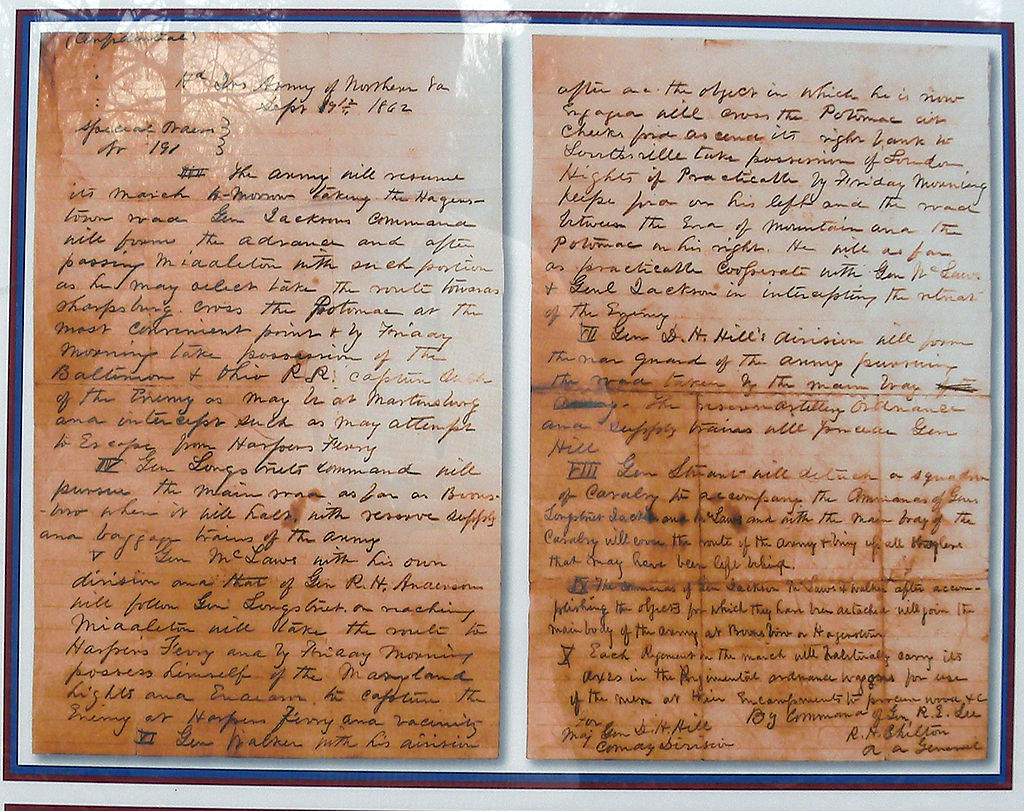 (Confidential)
Hd Qrs Army of Northern Va
Sept 9th 1862
Special Orders }
No 191 }
III The Army will resume
its march to-morrow taking the Hagers-
town road Gen Jacksons Command
will form the advance and after
passing Middleton with such portion
as he may select take the route towards
Sharpsburg cross the Potomac at the
most convenient point & by Friday
Morning take possession of the
Baltimore & Ohio R.R. capture such
of the Enemy as may be at Martinsburg
and intercept such as may attempt
to Escape from Harpers Ferry
IV Gen Longstreets command will
pursue the main road as far as Boons-
boro where it will halt, with reserve supply
and baggage trains of the army
V Gen McLaws with his own
division and that of Gen R. H. Anderson
will follow Gen Longstreet. on reaching
Middleton will take the route to
Harpers Ferry and by Friday Morning
possess himself of the Maryland
Hights and Endeavor to capture the
Enemy at Harpers Ferry and vacinity
VI Gen Walker with his division
after acc. the object in which he is now
Engaged will cross the Potomac at
Cheeks ford ascend its right bank to
Lovettsville take possession of Loudon
Hights if Practicable by Friday Morning
Keeps ford on his left and the road
between the End of Mountain and the
Potomac on his right. He will as far
as practicable Cooperate with Gen McLaws
& Genl Jackson in intercepting the retreat
of the Enemy
VII Gen D. H. Hill's division will form
the rear guard of the army pursuing
the road taken by the main body
The reserve Artillery Ordnance
and supply trains will precede Gen
Hill
VIII Gen Stuart will detach a squadron
of Cavalry to accompany the Commands of Gens
Longstreet Jackson and McLaws and with the main body of the
Cavalry will cover the route of the Army & bring up all stragglers
that may have been left behind.
IX The commands of Gen Jackson McLaws & Walker after accom-
plishing the objects for which they have been detached will join the
main body of the army at Boonsboro or Hagerstown
X Each Regiment on the march will habitually carry its
axes in the Regimental ordnance waggons for use
of the men at their Encampments to procure wood &c
By Command of Gen R. E. Lee
For
R. H. Chilton
Maj Gen D. H. Hill
A A General
Comdg Division